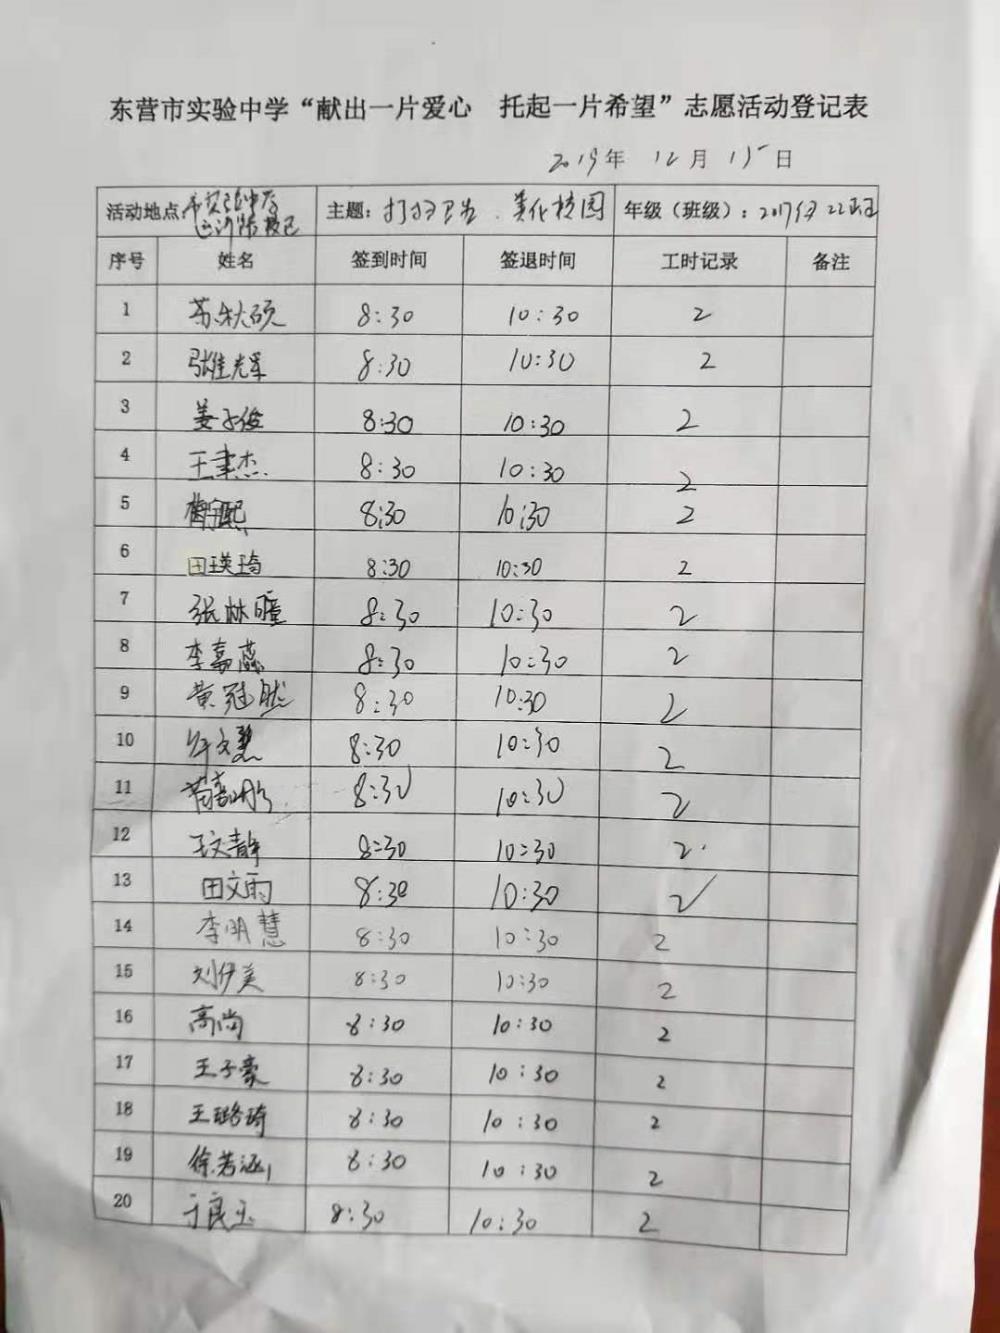 东营市实验中学“献出一片爱心 托起一片希望”志愿活动登记表
2019年 12月 15日
活动地点 主题：打扫卫生、美化校园 年级（班级）：2017级22班
序号 姓名 签到时间 签退时间 工时记录 备注
1 苏秋硕 8:30 10:30 2
2 张佳光军 8:30 10:30 2
3 姜子俊 8:30 10:30 2
4 王聿杰 8:30 10:30 2
5 8:30 10:30 2
6 田瑛琦 8:30 10:30 2
7 张林曈 8:30 10:30 2
8 李嘉蕊 8:30 10:30 2
9 黄冠然 8:30 10:30 2
10 8:30 10:30 2
11 8:30 10:30 2
12 王文静 8:30 10:30 2
13 田文雨 8:30 10:30 2
14 李明慧 8:30 10:30 2
15 刘伊美 8:30 10:30 2
16 高尚 8:30 10:30 2
17 王子豪 8:30 10:30 2
18 王璐琦 8:30 10:30 2
19 徐若涵 8:30 10:30 2
20 于良玉 8:30 10:30 2